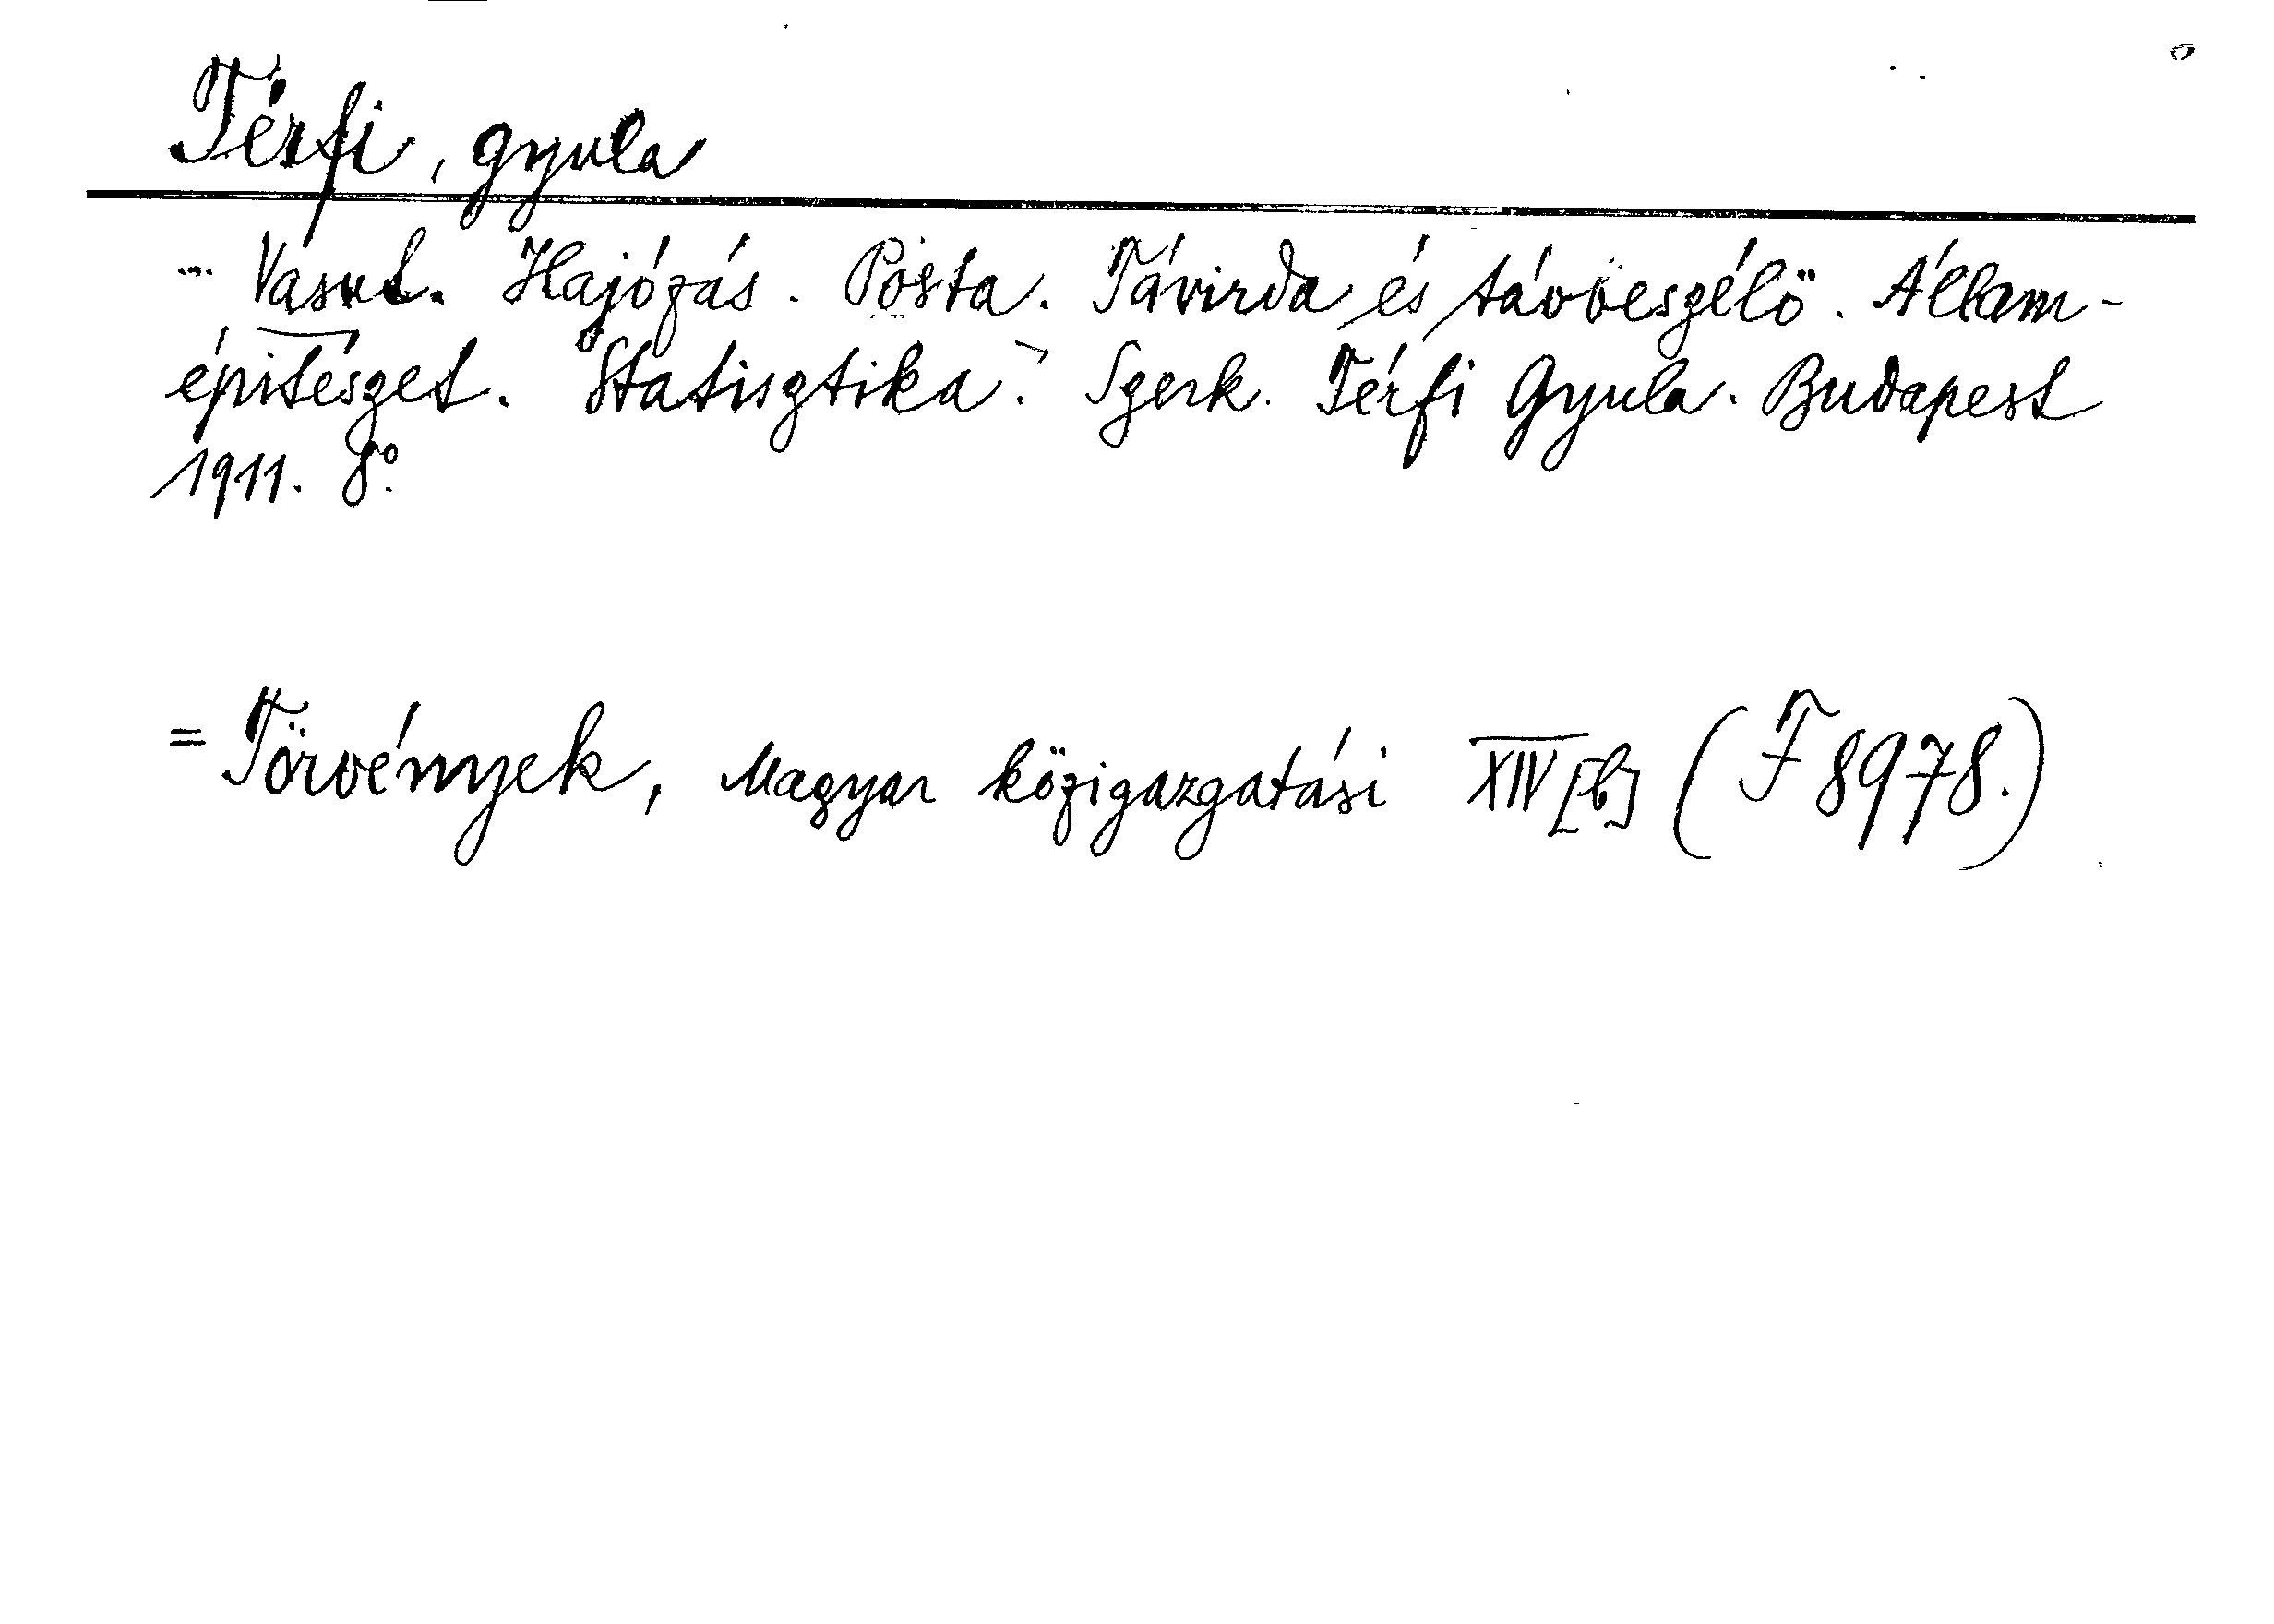 Térfi, Gyula
... Vasut. Hajózás. Posta. Távirda és távbeszélő. Állam-
épitészet. Statisztika. Szerk. Térfi Gyula. Budapest
1911. 8°.
= Törvények, Magyar közigazgatási XIV [b] (F 8978.)